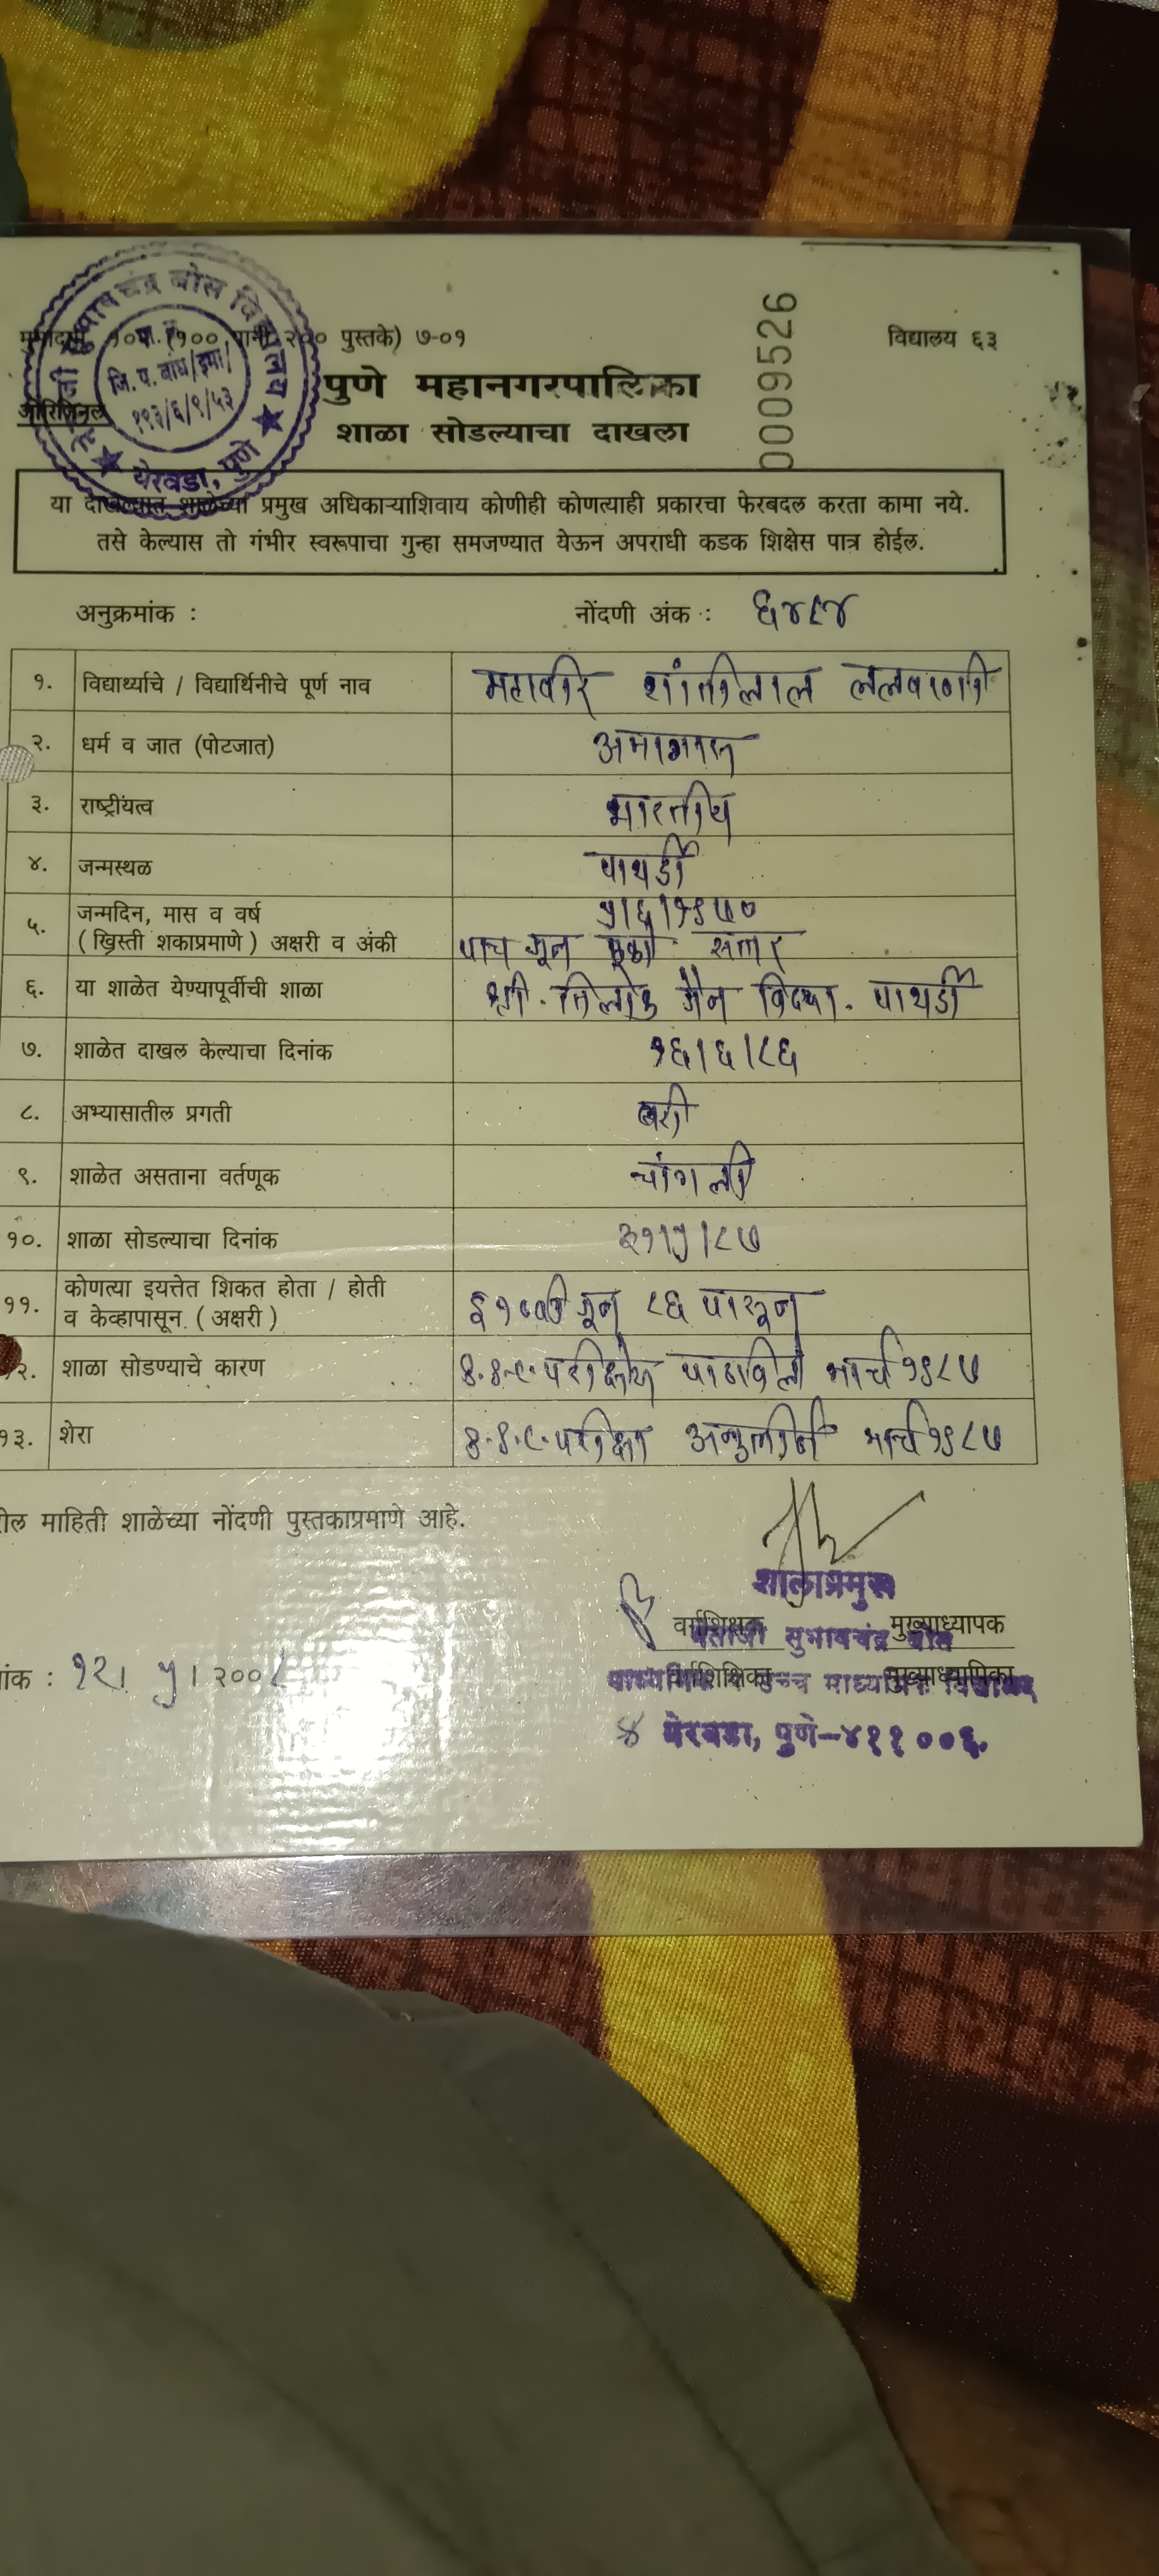 विद्यालय ६३
0009526
पुस्तके) ७-०१
ओरिजिनल
जि. प. बांध/इमा/
१९३/६/९/५३
येरवडा, पुणे
पुणे महानगरपालिका
शाळा सोडल्याचा दाखला
या दाखल्यात शाळेच्या प्रमुख अधिकाऱ्याशिवाय कोणीही कोणत्याही प्रकारचा फेरबदल करता कामा नये.
तसे केल्यास तो गंभीर स्वरूपाचा गुन्हा समजण्यात येऊन अपराधी कडक शिक्षेस पात्र होईल.
अनुक्रमांक : नोंदणी अंक : ६४८४
१. विद्यार्थ्याचे / विद्यार्थिनीचे पूर्ण नाव महावीर शांतीलाल ललवाणी
२. धर्म व जात (पोटजात)
३. राष्ट्रीयत्व भारतीय
४. जन्मस्थळ पाथर्डी
५. जन्मदिन, मास व वर्ष ५।६।१९७०
( ख्रिस्ती शकाप्रमाणे ) अक्षरी व अंकी पाच जून सत्तर
६. या शाळेत येण्यापूर्वीची शाळा श्री. तिलोक जैन विद्या. पाथर्डी
७. शाळेत दाखल केल्याचा दिनांक १६।६।८६
८. अभ्यासातील प्रगती बरी
९. शाळेत असताना वर्तणूक चांगली
१०. शाळा सोडल्याचा दिनांक ३१।५।८७
११. कोणत्या इयत्तेत शिकत होता / होती
व केव्हापासून ( अक्षरी ) इ १०वी जून ८६ पासून
१२. शाळा सोडण्याचे कारण परीक्षेस पाठविले मार्च १९८७
१३. शेरा परीक्षा अनुत्तीर्ण मार्च १९८७
माहिती शाळेच्या नोंदणी पुस्तकाप्रमाणे आहे.
शाळाप्रमुख
वर्गशिक्षक मुख्याध्यापक
सुभाषचंद्र बोस
वर्गशिक्षिका मुख्याध्यापिका
उच्च माध्यमिक विद्यालय
१२। ५। २००८
येरवडा, पुणे-४११००६.